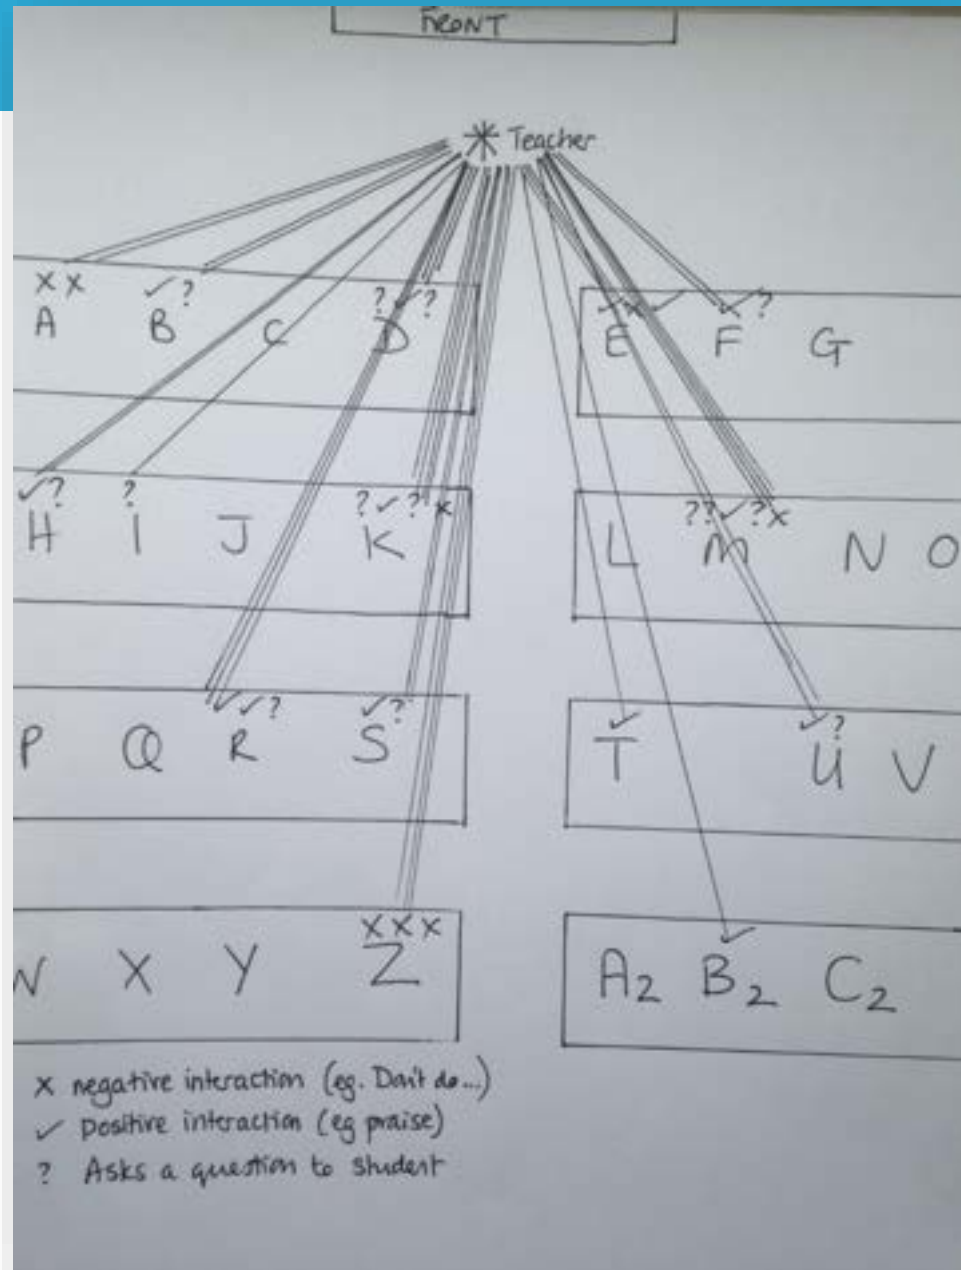 FRONT
Teacher
x x ✓ ? ? ✓ ? ✓ x ✓ ✓ ?
A B C D E F G
✓ ? ? ? ✓ ? x ? ? ✓ ? x
H I J K L M N O
✓ ✓ ? ✓ ? ✓ ✓ ?
P Q R S T U V
x x x ✓
X Y Z A2 B2 C2
x negative interaction (eg. Don't do...)
✓ positive interaction (eg praise)
? Asks a question to student